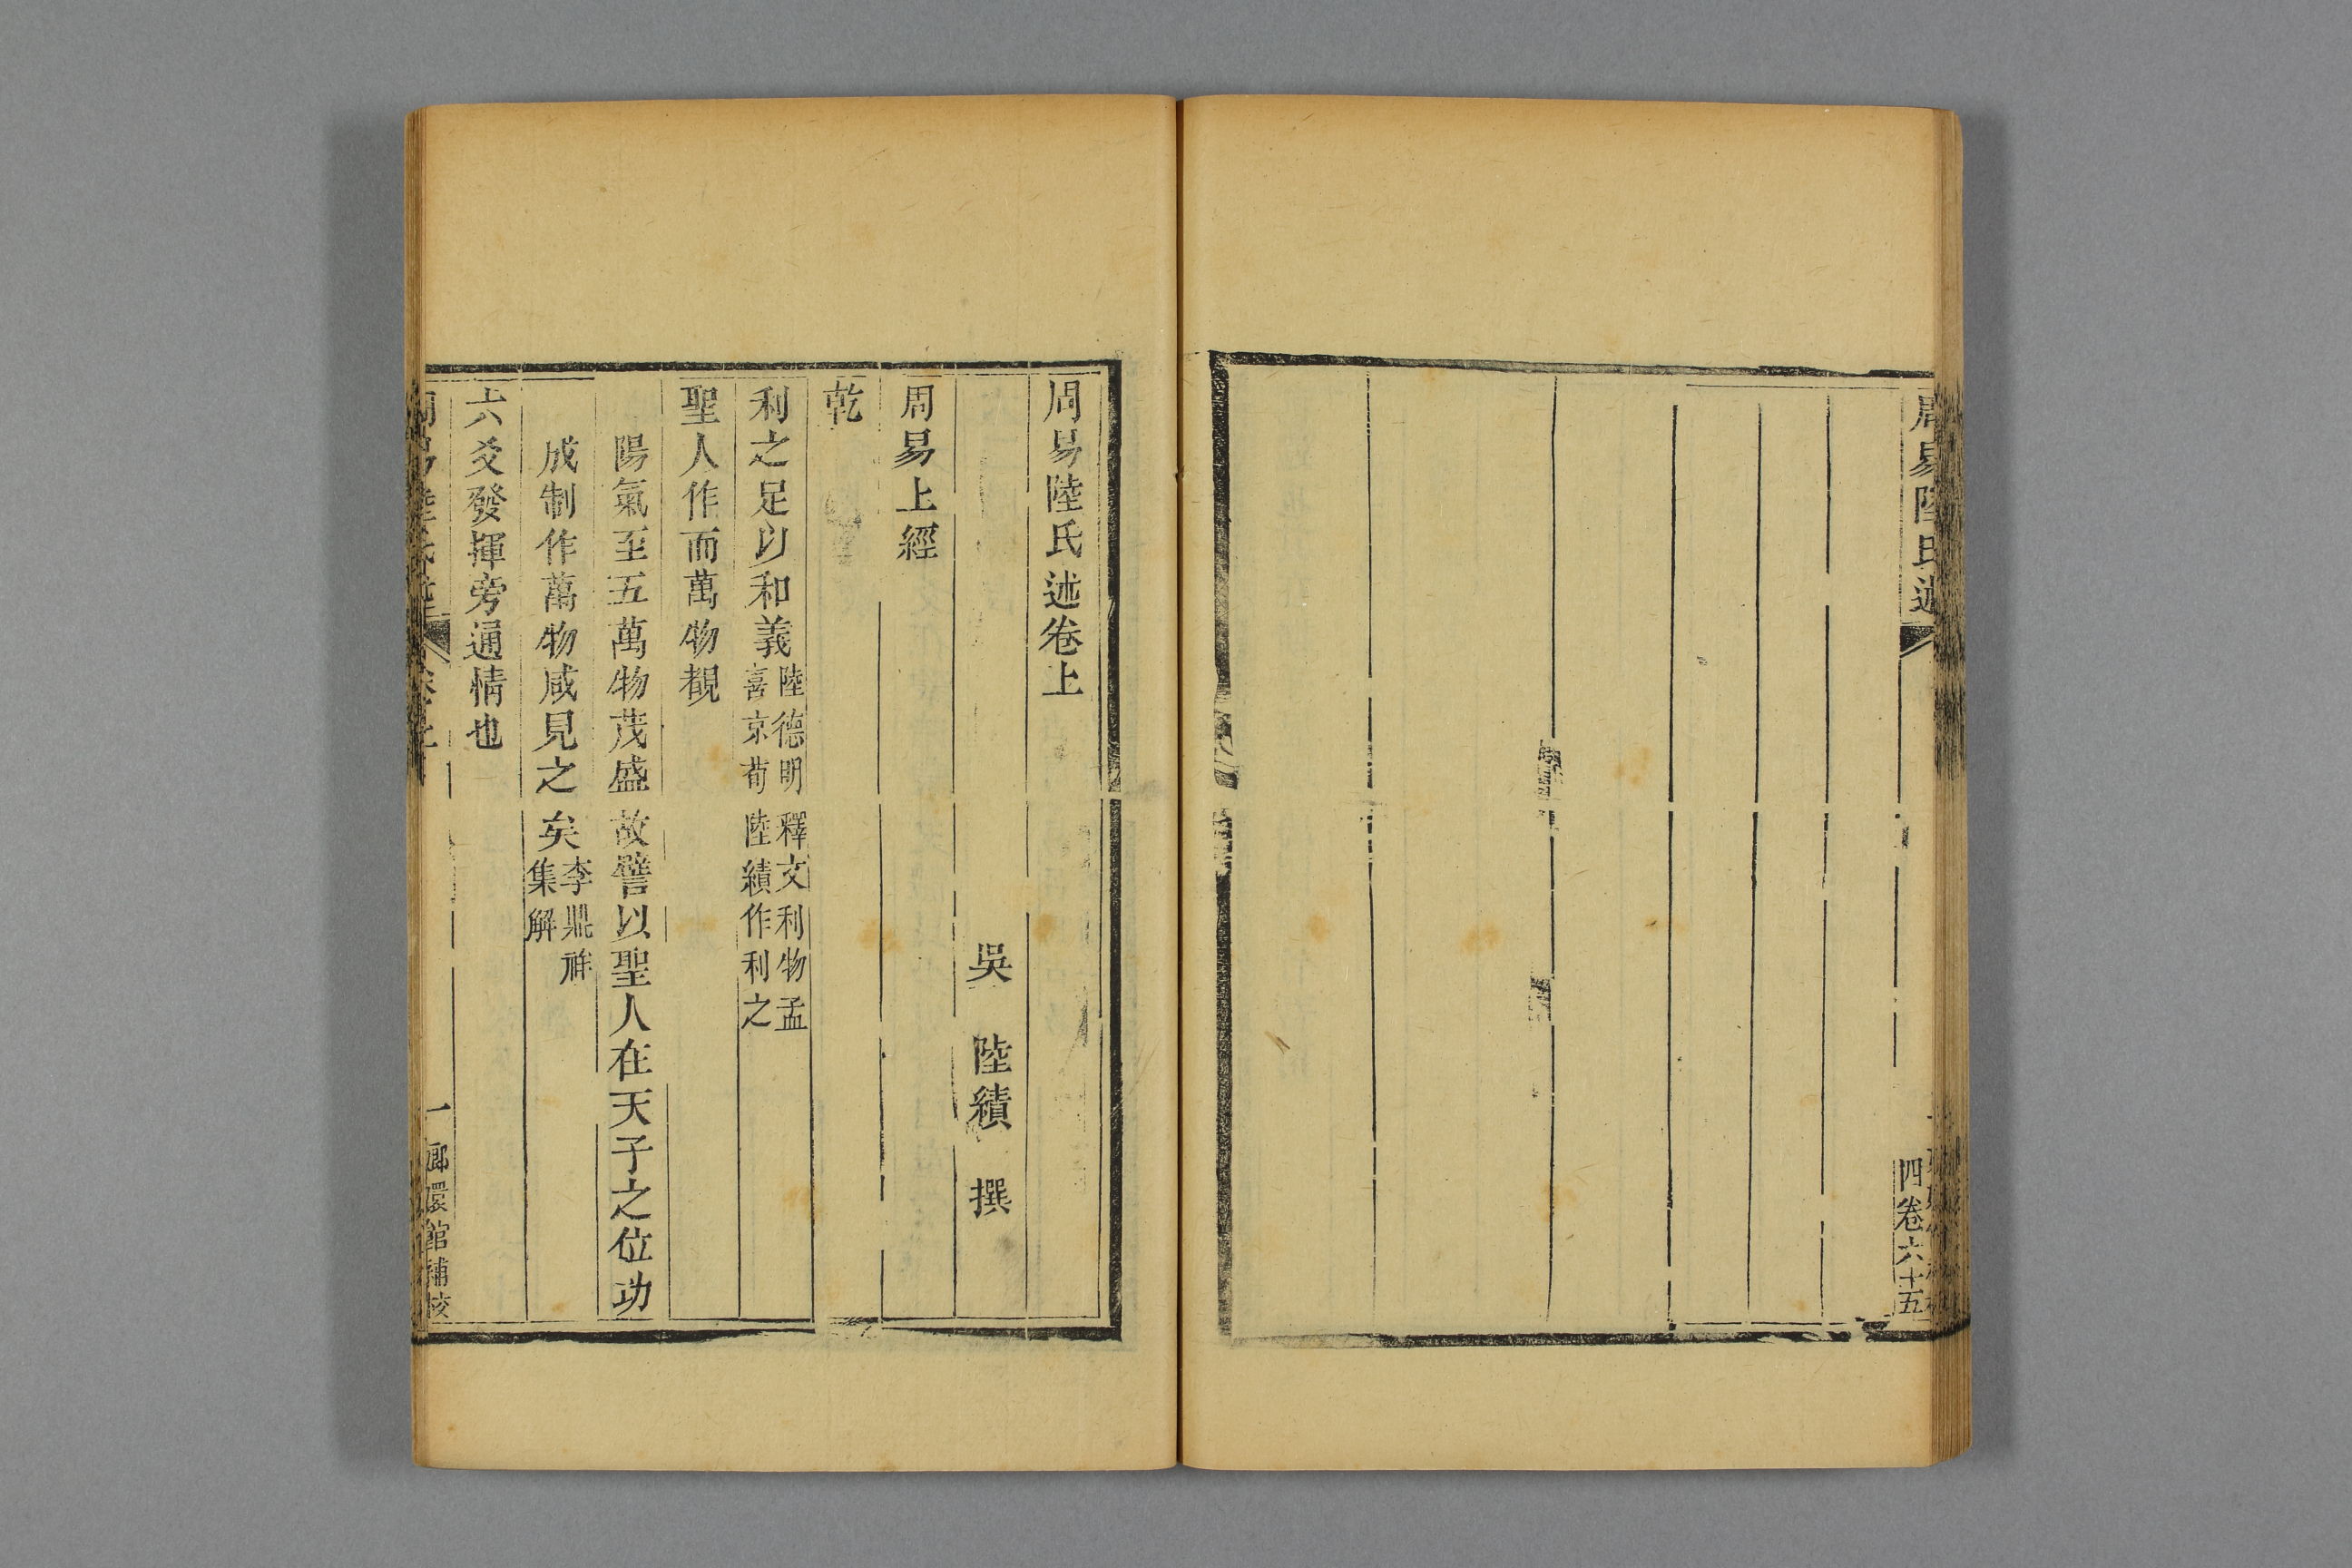 周易陸氏述
四卷六十五
周易陸氏述卷上
吳 陸績 撰
周易上經
乾
利之足以和義陸德明釋文利物孟喜京荀陸績作利之
聖人作而萬物覩
陽氣至五萬物茂盛故譬以聖人在天子之位功
成制作萬物咸見之矣李鼎祚集解
六爻發揮旁通情也
周易陸氏述 卷上 一 嫏嬛館補校